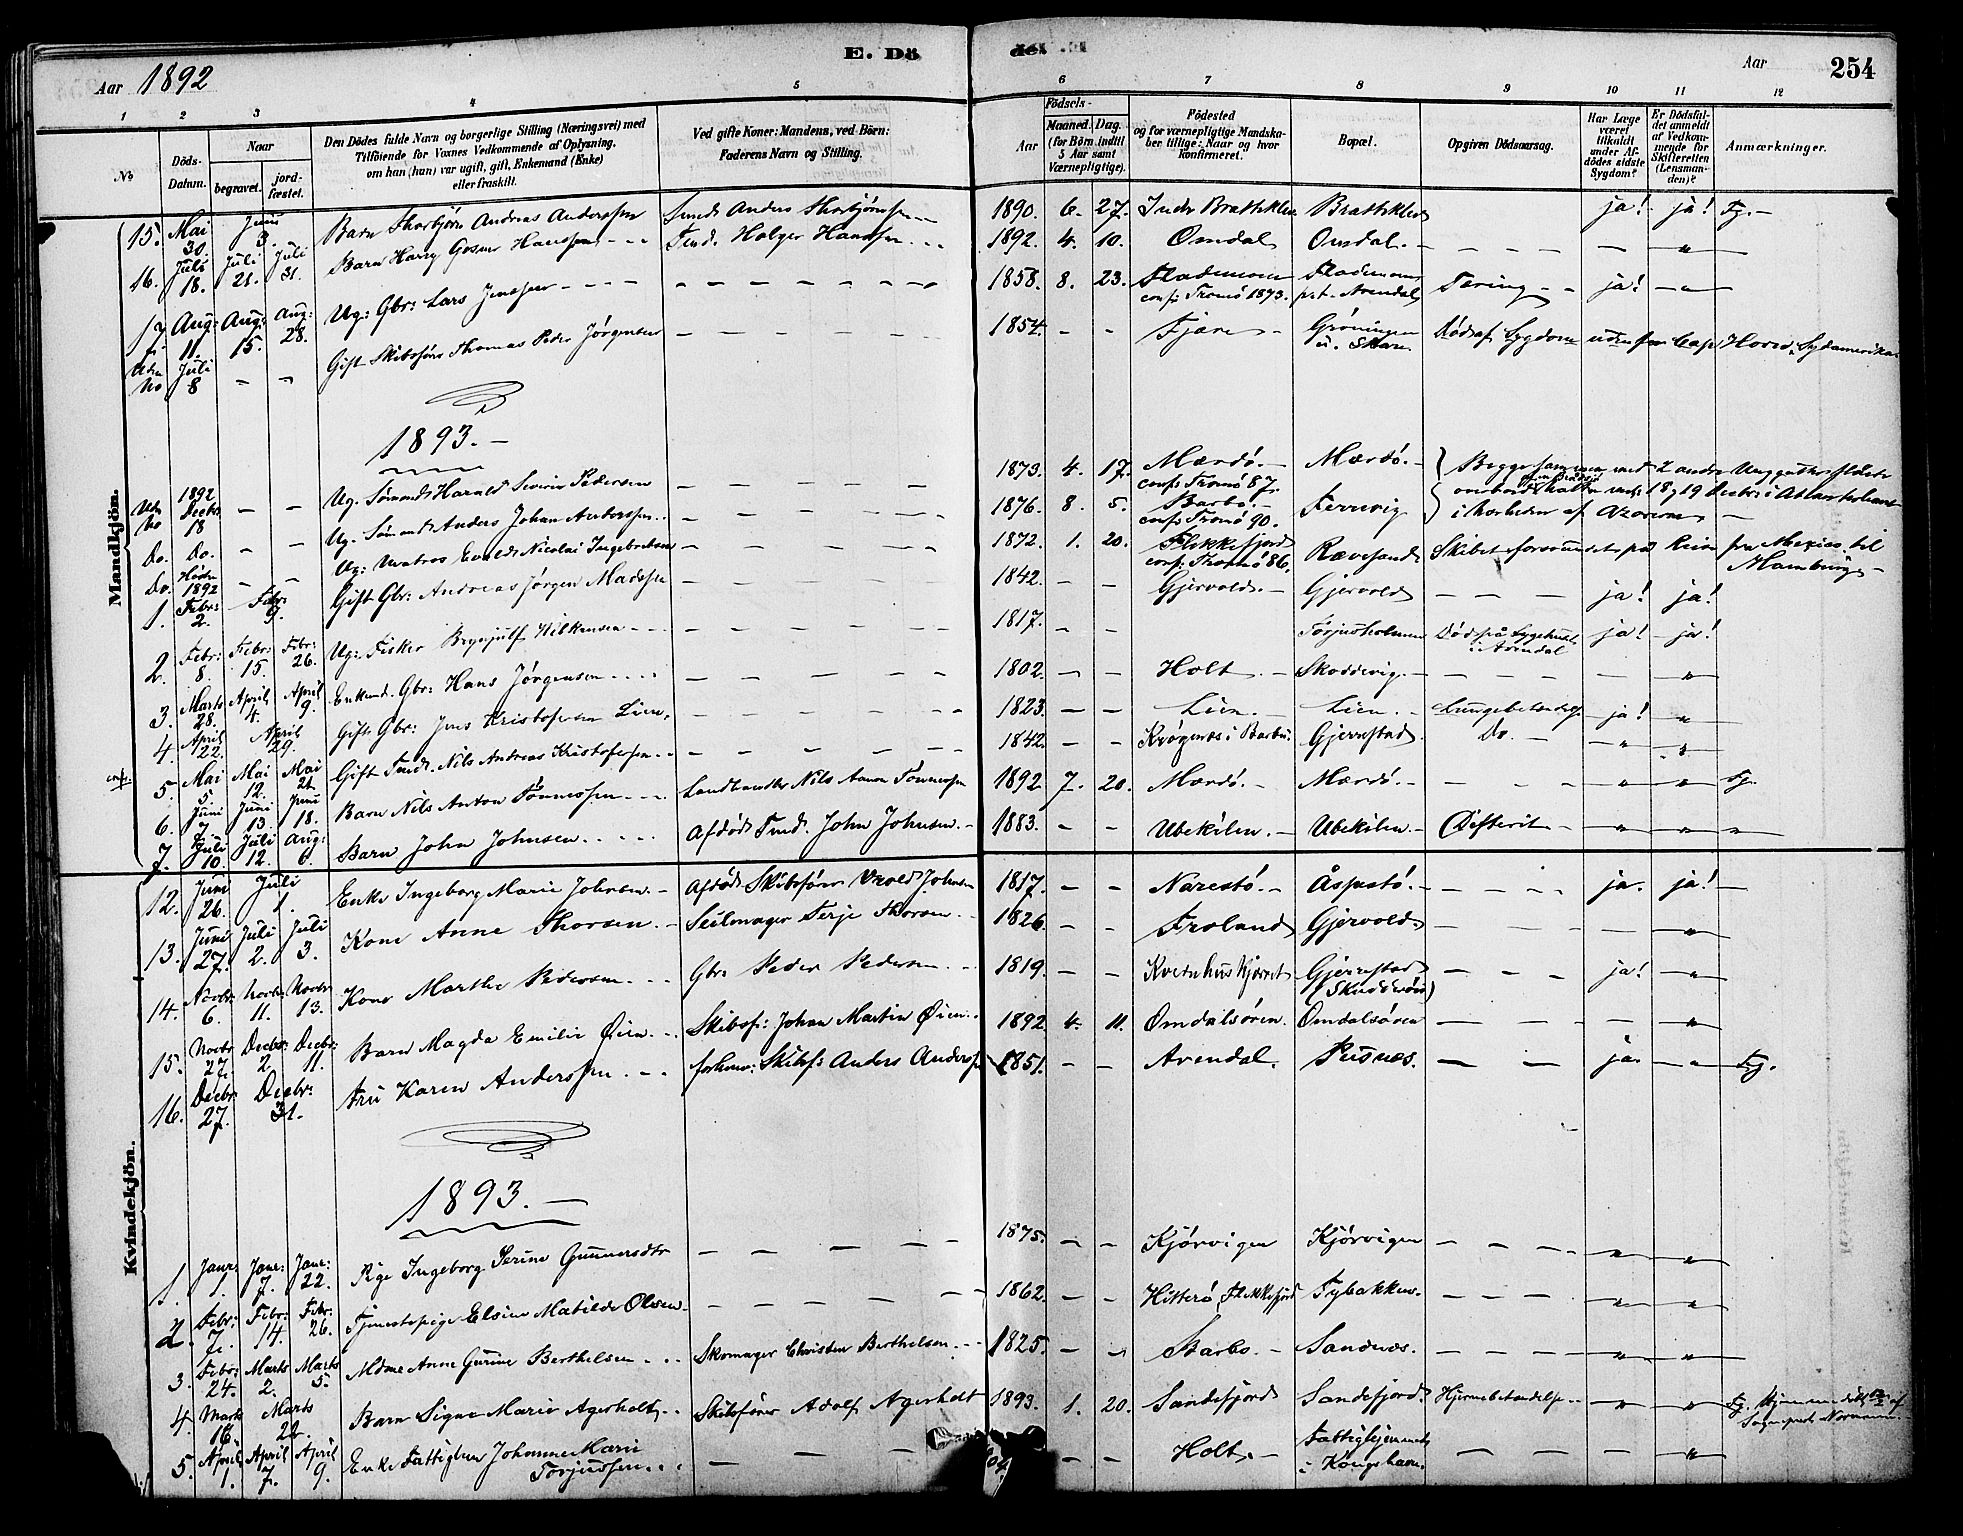 E. Dö
Aar 1892
Aar
254
1 2 3 4 5 6 7 8 9 10 11 12
No
Döds-Datum.
Naar
begravet.
jordfæstet.
Den Dödes fulde Navn og borgerlige Stilling (Næringsvei) med Tilföiende for Voxnes Vedkommende af Oplysning, om han (hun) var ugift, gift, Enkemand (Enke) eller fraskilt.
Ved gifte Koner: Mandens, ved Börn: Faderens Navn og Stilling.
Födsels-
Aar
Maaned. Dag.
(for Börn indtil 5 Aar samt Værnepligtige).
Födested og for værnepligtige Mandskaber tillige: Naar og hvor konfirmeret.
Bopæl.
Opgiven Dödsaarsag.
Har Læge været tilkaldt under Afdödes sidste Sygdom?
Er Dödsfaldet anmeldt af Vedkommende for Skifteretten (Lensmanden)?
Anmærkninger.
Mandkjön.
15. Mai 30. Juni 3. Barn Thorbjörn Andreas Anderssen 1890. 6. 27. Brattekleo ja! ja! Fg. —
16. Juli 18. Juli 21. Juli 31. Barn Harry Hanssen Holger Hanssen 1892. 4. 10. Omdal Omdal. — — — — — "
17. Aug: 11. Aug: 15. Aug: 28. Ug: Gbr: Lars Jenssen — — — 1858. 8. 23. confs Tromö 1873. Arendal Tæring — ja! — " —
Uden No Juli 8 — — Gift Skibsförer Thomas Peder Jörgensen — — 1854. — — Fjære — Gröningen Död af Sygdom Cap Horn, Sydamerika
1893. —
Uden No 1892 Decbr 18 — — Ug. Sömand Harald Severin Pedersen — — 1873. 4. 17. Mærdö. — confs Tromö 87. Mærdö. — Begge sammen med 2 andre
Do. Do. — — Ug. Sömand Anders Johan Anderssen — — 1876. 8. 5. Barbo. — confs Tromö 90. Fervevig 18 & 19 Decbr i Atlanterhavet i Nærheden af Azorerne —
Do. Hösten 1892 — — Ug: Matros Evald Nicolai Ingebretsen — — 1872. 1. 20. Flekkefjord confs: Tromö 86. Rævesand Skibet forsvundet på Reise fra Mexico til Hamburg —
1. Febr: 2. Febr: 9. Gift Gbr: Andreas Jörgen Madssen — — 1842. — — Gjervold. — Gjervold — — — ja! ja!
2. Febr: 8. Febr: 15. Febr: 26. Ug: Fisker Brynjulf Wilkensen — — 1817. — — Torjusholmen Död på Sygehuset i Arendal ja! — ja!
3. Marts 28. April 4. April 9. Enkemd. Gbr: Hans Jörgensen — — 1802 — — Holt. — Skoddevig. — — — — "
4. April 22. April 29. Gift Gbr: Jens Kristofersen Lien, — — 1823. — — Lien. — Lien. — Lungebetændelse ja! "
5. Mai 5. Mai 12. Mai 21. Gift Nils Andreas Kristofersen — — 1842 — — i Barbu. Gjerrestad. Do. — — " — "
6. Juni 7. Juni 13. Juni 18. Barn Nils Anton Tönnessen — — Landhandler Nils Tönnessen 1892 7. 20. Mærdö. — Mærdö. — — — — " — " — Fg.
7. Juli 10. Juli 12. Aug: 6. Barn John Johnsen — — Afdöd John Johnsen. — 1883. — — Ubekilen. — Ubekilen. — Difterit — " — " — "
Kvindekjön.
12. Juni 26. Juli 1. Enke Ingeborg Marie Johnsen. — Afdöd Skibsförer Johnsen 1817. — — Narestö. — Åspestö. — — — ja. ja! —
13. Juni 27. Juli 2. Juli 3. Kone Anne Thorsen. — Seilmager Terje Thorsen. — 1826 — — Froland Gjervold. — — — — "
14. Novbr. 6. Novbr 11. Novbr 13. Kone Marthe Pedersen — — Gbr: Peder Pedersen — 1819. — — Gjerrestad — — — ja! — "
15. Novbr 27. Decbr: 2. Decbr: 11. Barn Magda Emilie Öien — — Skibsf: Johan Martin Öien. 1892 4. 11. Omdalsören. Omdalsören — — — "
16. Decbr 27. Decbr: 31. Fru Karen Anderssen. — Skibsf: Anders Anderssen 1851. — — Arendal. Pusnes. — — ja — " — Fg.
1893. —
1. Janr 1. Janr: 7. Janr: 22. Pige Ingeborg Serine Gunnersdtr — — — — 1875. — — Kjörvigen Kjörvigen — — — " "
2. Febr: 7. Febr: 14. Febr: 26. Tjenestepige Elsine Matilde Olsen. — — — 1862. — — Hitterö, Flekkefjord Tybakken. — — — " "
3. Febr: 24. Marts 2. Marts 5. Mdme Anne Gurine Berthelsen Skomager Christen Berthelsen. — 1825. — — Barbo. — Sandnæs. — — — " "
4. Marts 16. Marts 22. Barn Signe Marie Agerholt Skibsförer Adolf Agerholt 1893. 1. 20. Sandefjord Sandefjord. Hjernebetændelse " " Fg. Hjemmedöbt af Sognepræst
5. April 1. April 7. April 9. Enke Fattiglem Johanne Marie Torjussen — — — — — Holt. — Fattighjemmet i Kongshavn. — — — "